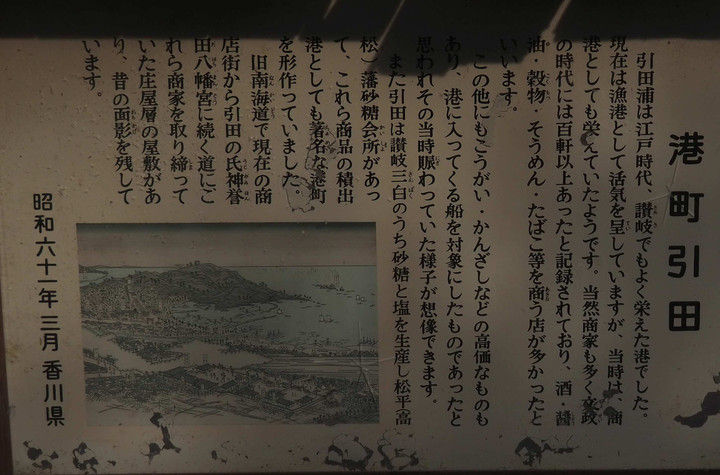 港町引田
引田浦は江戸時代、讃岐でもよく栄えた港でした。
現在は漁港として活気を呈していますが、当時は、商
港としても栄えていたようです。当然商家も多く文政
の時代には百軒以上あったと記録されており、酒・醤
油・穀物・そうめん・たばこ等を商う店が多かったと
いいます。
この他にもこうがい・かんざしなどの高価なものも
あり、港に入ってくる船を対象にしたものであったと
思われその当時賑わっていた様子が想像できます。
また引田は讃岐三白のうち砂糖と塩を生産し松平(高
松)藩砂糖会所があっ
て、これら商品の積出
港としても著名な港町
を形作っていました。
旧南海道で現在の商
店街から引田の氏神誉
田八幡宮に続く道にこ
れら商家を取り締って
いた庄屋層の屋敷があ
り、昔の面影を残して
います。
昭和六十一年三月 香川県